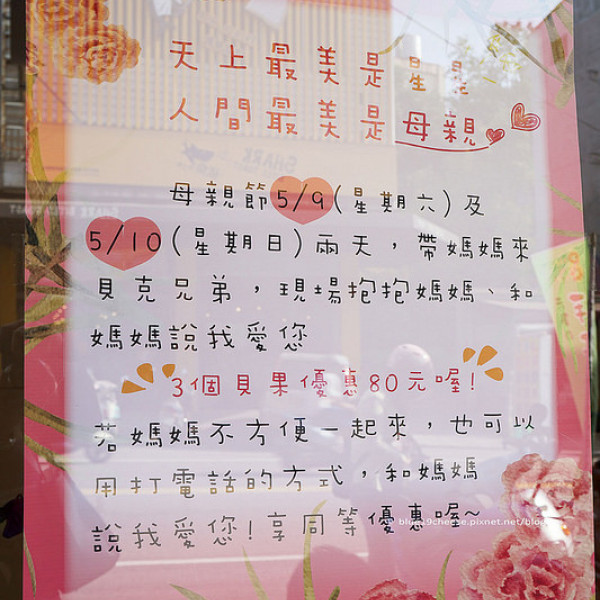 天上最美是星星
人間最美是母親
母親節5/9(星期六)及
5/10(星期日)兩天，帶媽媽來
貝克兄弟，現場抱抱媽媽、和
媽媽說我愛您
3個貝果優惠80元喔!
若媽媽不方便一起來，也可以
用打電話的方式，和媽媽
說我愛您!享同等優惠喔~
blue19cheese.pixnet.net/blog
SHARK